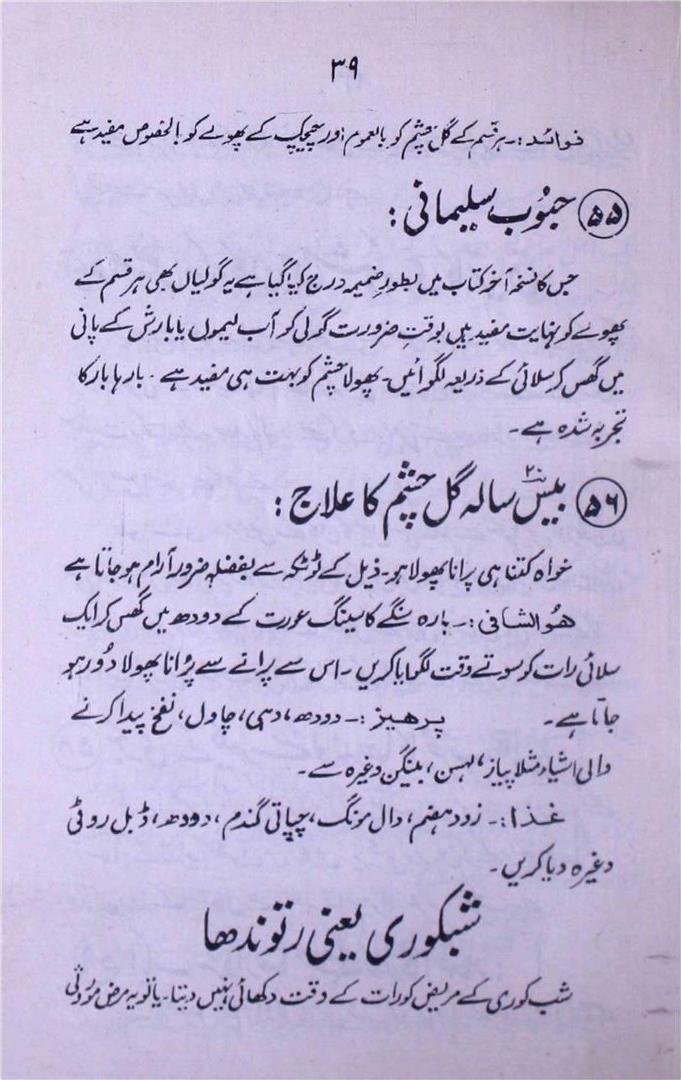 ۳۹
فوائد :۔ ہر قسم کے گل چشم کو بالعموم اور چیچک کے پھولے کو بالخصوص مفید ہے
۵۵ حبُوب سلیمانی :
جس کا نسخہ آخر کتاب میں بطور ضمیمہ درج کیا گیا ہے یہ گولیاں بھی ہر قسم کے
پھولے کو نہایت مفید ہیں بوقتِ ضرورت گولی کو آب لیموں یا بارش کے پانی
میں گھس کر سلائی کے ذریعہ لگوائیں۔ پھولا چشم کو بہت ہی مفید ہے ۔ بارہا بار کا
تجربہ شدہ ہے ۔
۵۶ بیس ۲۰ سالہ گل چشم کا علاج :
خواہ کتنا ہی پرانا پھولا ہو۔ ذیل کے ٹوٹکہ سے بفضلہٖ ضرور آرام ہو جاتا ہے
ھُوالشافی :۔ بارہ سنگے کا سینگ عورت کے دودھ میں گھس کر ایک
سلائی رات کو سوتے وقت لگوایا کریں ۔ اس سے پرانے سے پُرانا پھولا دُور ہو
جاتا ہے ۔ پرھیز :۔ دودھ، دہی، چاول، نفخ پیدا کرنے
والی اشیاء مثلا پیاز، لہسن، بینگن وغیرہ سے ۔
غذا :۔ زود ہضم، دال مونگ، چپاتی گندم، دودھ، ڈبل روٹی
وغیرہ دیا کریں ۔
شبکوری یعنی رتوندھا
شب کوری کے مریض کو رات کے وقت دکھائی نہیں دیتا ۔ یا تو یہ مرض موروثی